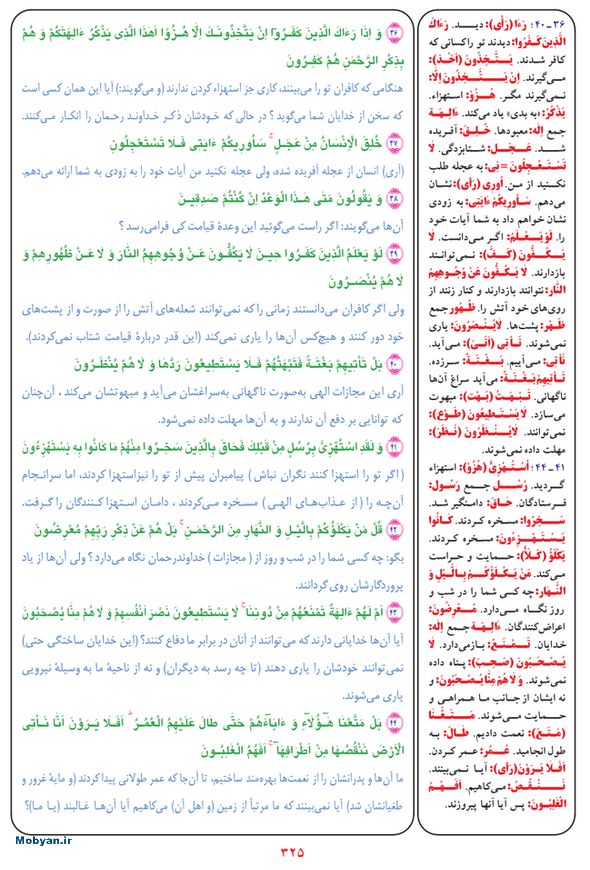 ۳۶ وَ اِذا رَءاكَ الَّذينَ كَفَروآ اِنْ يَتَّخِذونَكَ اِلّا هُزُوًا اَهٰذَا الَّذى يَذْكُرُ ءالِهَتَكُمْ وَ هُمْ
بِذِكْرِ الرَّحْمٰنِ هُمْ كٰفِرونَ
هنگامی که کافران تو را می‌بینند، کاری جز استهزاء کردن ندارند (و می‌گویند:) آیا این همان کسی است
که سخن از خدایان شما می‌گوید؟ در حالی که خودشان ذکر خداوند رحمان را انکار می‌کنند.
۳۷ خُلِقَ الْاِنْسانُ مِنْ عَجَلٍ ۚ سَاُوريكُمْ ءايٰتى فَلا تَسْتَعْجِلونِ
(آری) انسان از عجله آفریده شده، ولی عجله نکنید من آیات خود را به زودی به شما ارائه می‌دهم.
۳۸ وَ يَقولونَ مَتٰى هٰذَا الْوَعْدُ اِنْ كُنْتُمْ صٰدِقينَ
آن‌ها می‌گویند: اگر راست می‌گوئید این وعدهٔ قیامت کی فرامی‌رسد؟
۳۹ لَوْ يَعْلَمُ الَّذينَ كَفَروا حينَ لا يَكُفّونَ عَنْ وُجوهِهِمُ النّارَ وَ لا عَنْ ظُهورِهِمْ وَ
لا هُمْ يُنْصَرونَ
ولی اگر کافران می‌دانستند زمانی را که نمی‌توانند شعله‌های آتش را از صورت و از پشت‌های
خود دور کنند و هیچ‌کس آن‌ها را یاری نمی‌کند (این قدر دربارهٔ قیامت شتاب نمی‌کردند).
۴۰ بَلْ تَأْتيهِمْ بَغْتَةً فَتَبْهَتُهُمْ فَلا يَسْتَطيعونَ رَدَّها وَ لا هُمْ يُنْظَرونَ
آری این مجازات الهی به‌صورت ناگهانی به‌سراغشان می‌آید و مبهوتشان می‌کند، آن‌چنان
که توانایی بر دفع آن ندارند و به آن‌ها مهلت داده نمی‌شود.
۴۱ وَ لَقَدِ اسْتُهْزِئَ بِرُسُلٍ مِنْ قَبْلِكَ فَحاقَ بِالَّذينَ سَخِروا مِنْهُمْ ما كانوا بِه يَسْتَهْزِءُونَ
(اگر تو را استهزا کنند نگران نباش) پیامبران پیش از تو را نیز استهزا کردند، اما سرانجام
آن‌چه را (از عذاب‌های الهی) مسخره می‌کردند، دامان استهزا کنندگان را گرفت.
۴۲ قُلْ مَنْ يَكْلَؤُكُمْ بِالَّيْلِ وَ النَّهارِ مِنَ الرَّحْمٰنِ ۚ بَلْ هُمْ عَنْ ذِكْرِ رَبِّهِمْ مُعْرِضونَ
بگو: چه کسی شما را در شب و روز از (مجازات) خداوند رحمان نگاه می‌دارد؟ ولی آن‌ها از یاد
پروردگارشان روی گردانند.
۴۳ اَمْ لَهُمْ ءالِهَةٌ تَمْنَعُهُمْ مِنْ دونِنا ۚ لا يَسْتَطيعونَ نَصْرَ اَنْفُسِهِمْ وَ لا هُمْ مِنّا يُصْحَبونَ
آیا آن‌ها خدایانی دارند که می‌توانند از آنان در برابر ما دفاع کنند؟ (این خدایان ساختگی حتی)
نمی‌توانند خودشان را یاری دهند (تا چه رسد به دیگران) و نه از ناحیهٔ ما به وسیلهٔ نیرویی
یاری می‌شوند.
۴۴ بَلْ مَتَّعْنا هٰٓؤُلآءِ وَ ءابآءَهُمْ حَتّٰى طالَ عَلَيْهِمُ الْعُمُرُ ۗ اَفَلا يَرَوْنَ اَنّا نَأْتِى
الْاَرْضَ نَنْقُصُها مِنْ اَطْرافِها ۚ اَفَهُمُ الْغٰلِبونَ
ما آن‌ها و پدرانشان را از نعمت‌ها بهره‌مند ساختیم، تا آن‌جا که عمر طولانی پیدا کردند (و مایهٔ غرور و
طغیانشان شد) آیا نمی‌بینند که ما مرتباً از زمین (و اهل آن) می‌کاهیم آیا آن‌ها غالبند (یا ما)؟
۳۶-۴۰: رَءا (رَأی): دید. رَءاكَ
الَّذينَ كَفَروا: دیدند تو را کسانی که
کافر شدند. يَتَّخِذونَ (اَخَذَ):
می‌گیرند. اِنْ يَتَّخِذونَ اِلّا:
نمی‌گیرند مگر. هُزُؤ: استهزاء.
يَذْكُرُ: «به بدی» یاد می‌کند. ءالِهَة
جمع اِلٰه: معبودها. خُلِقَ: آفریده
شد. عَجَل: شتابزدگی. لا
تَسْتَعْجِلونِ = نی: به عجله طلب
نکنید از من. اُوری (رَأی): نشان
می‌دهم. سَاُوريكُمْ ءايٰتى: به زودی
نشان خواهم داد به شما آیات خود
را. لَوْ يَعْلَمُ: اگر می‌دانست. لا
يَكُفّونَ (كَفَّ): نمی‌توانند
بازدارند. لا يَكُفّونَ عَنْ وُجوهِهِمُ
النّارَ: نتوانند بازدارند و کنار زنند از
روی‌های خود آتش را. ظُهور جمع
ظَهْر: پشت‌ها. لا يُنْصَرونَ: یاری
نمی‌شوند. تَأْتى (اَتیٰ): می‌آید.
نَأْتى: می‌آییم. بَغْتَةً: سرزده.
تَأْتيهِمْ بَغْتَةً: می‌آید سراغ آن‌ها
ناگهانی. تَبْهَتُ (بَهَتَ): مبهوت
می‌سازد. لا يَسْتَطيعونَ (طَوَعَ):
نمی‌توانند. لا يُنْظَرونَ (نَظَرَ):
مهلت داده نمی‌شوند.
۴۱-۴۴: اُسْتُهْزِئَ (هَزُؤَ): استهزاء
گردید. رُسُل جمع رَسول:
فرستادگان. حاقَ: دامنگیر شد.
سَخِروا: مسخره کردند. كانوا
يَسْتَهْزِءُونَ: مسخره کردند.
يَكْلَؤُ (كَلَأَ): حمایت و حراست
می‌کند. مَنْ يَكْلَؤُكُمْ بِالَّيْلِ وَ
النَّهارِ: چه کسی شما را در شب و
روز نگاه می‌دارد. مُعْرِضونَ:
اعراض‌کنندگان. ءالِهَة جمع اِلٰه:
خدایان. تَمْنَعُ: بازمی‌دارد. لا
يُصْحَبونَ (صَحِبَ): پناه داده
نمی‌شوند. وَ لا هُمْ مِنّا يُصْحَبونَ: و
نه ایشان از جانب ما همراهی و
حمایت می‌شوند. مَتَّعْنا
(مَتَعَ): نعمت دادیم. طالَ: به
طول انجامید. عُمُر: عمر کردن.
اَفَلا يَرَوْنَ (رَأی): آیا نمی‌بینند.
نَنْقُصُ: می‌کاهیم. اَفَهُمُ
الْغٰلِبونَ: پس آیا آنها پیروزند.
Mobyan.ir
۳۲۵